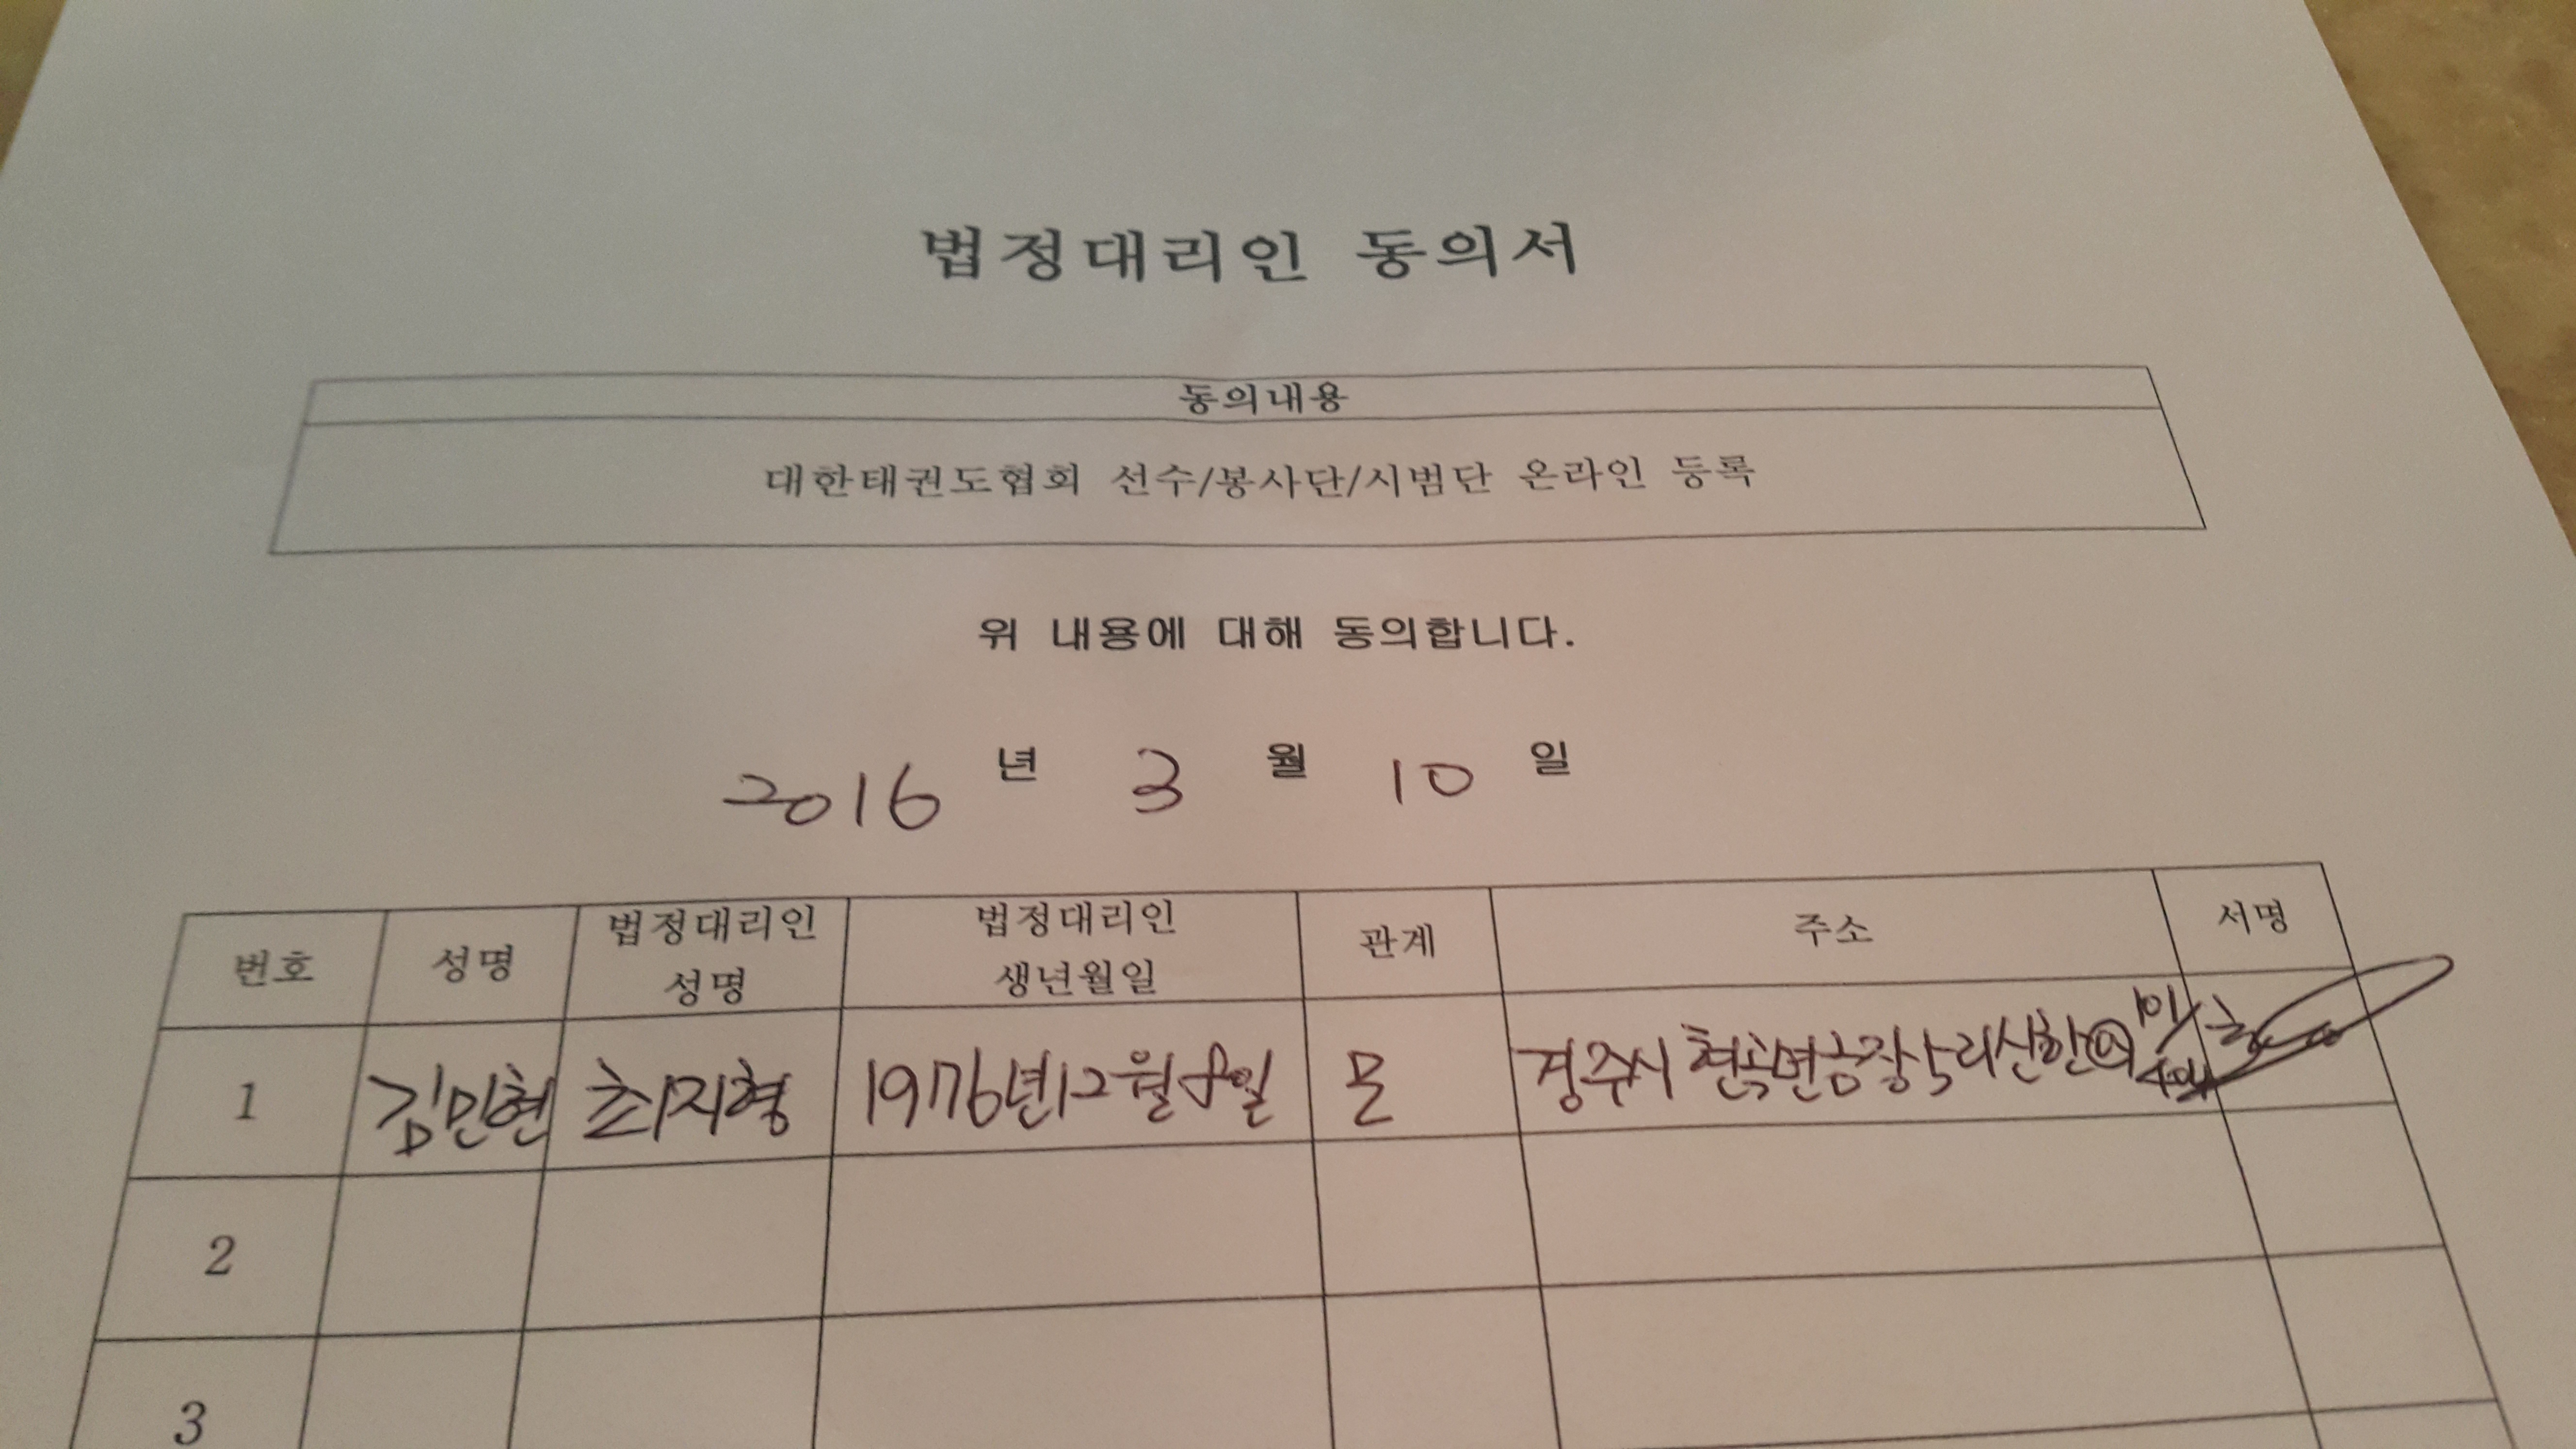 법정대리인 동의서
동의내용
대한태권도협회 선수/봉사단/시범단 온라인 등록
위 내용에 대해 동의합니다.
2016 년 3 월 10 일
번호 성명 법정대리인 성명 법정대리인 생년월일 관계 주소 서명
1 김민현 최지형 1976년12월8일 모 경주시 현곡면금장리신한 101/
2
3